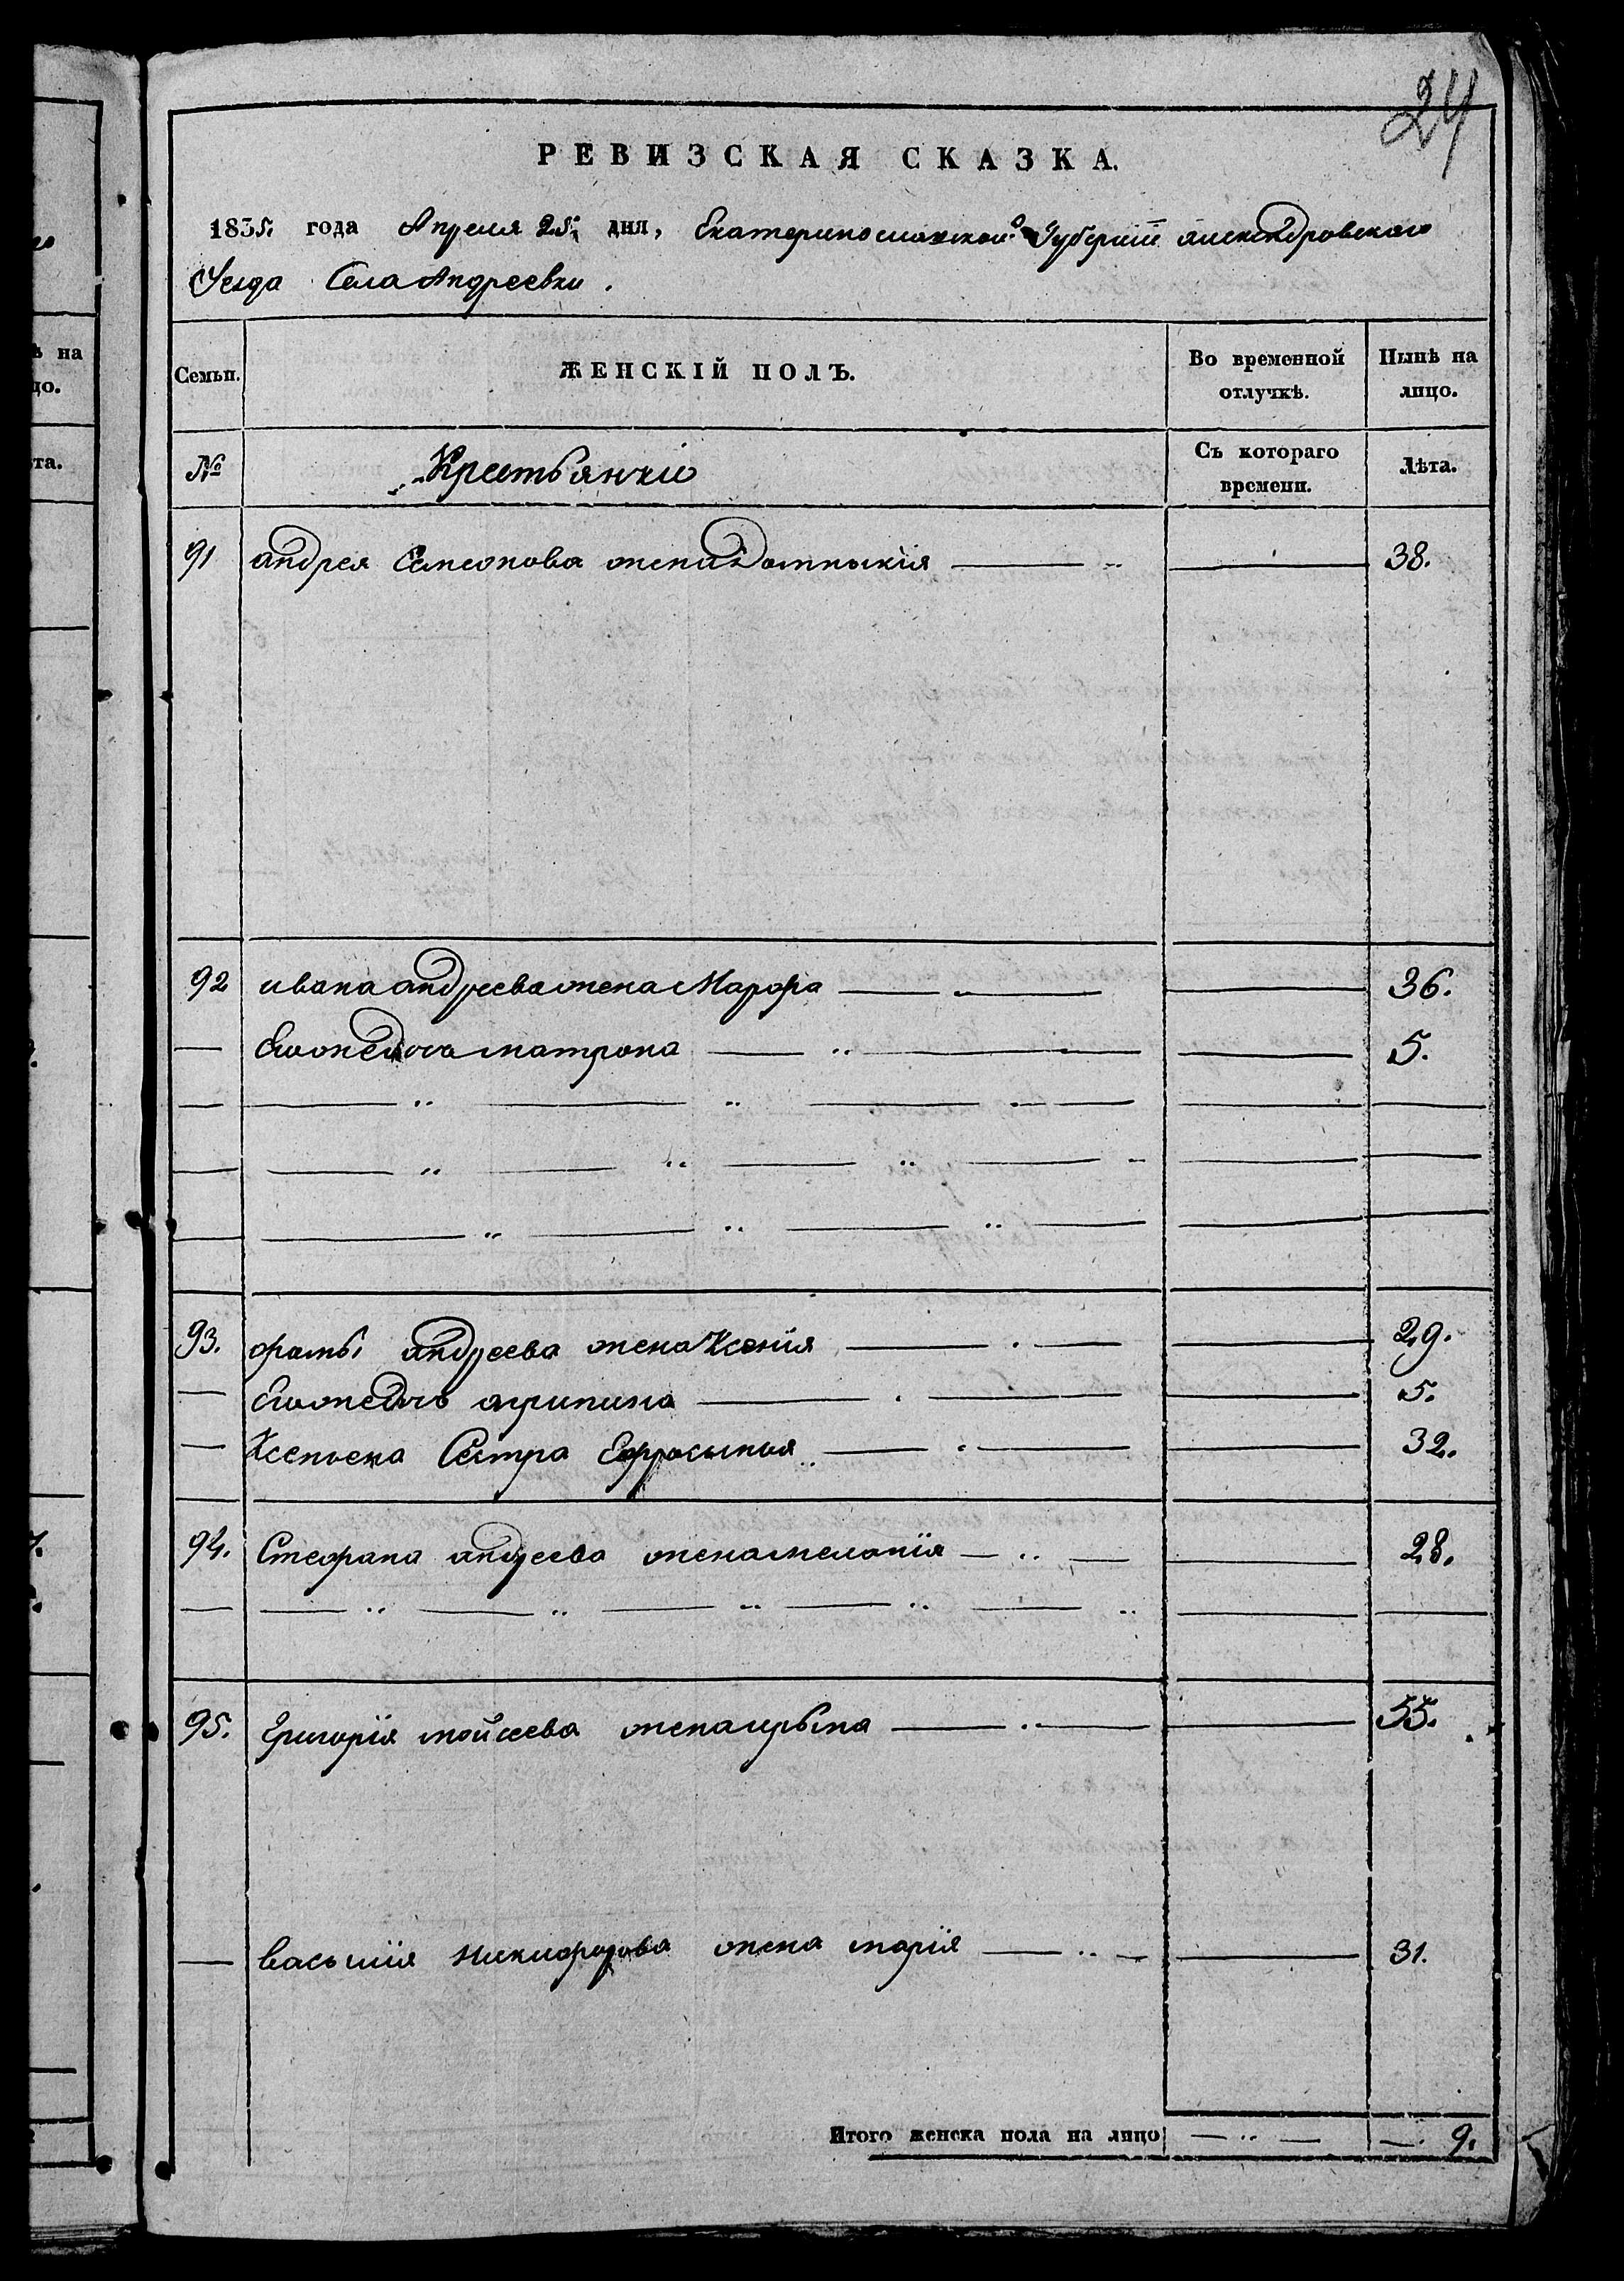 24
РЕВИЗСКАЯ СКАЗКА.
1835. года Апреля 25. дня, Екатеринославской Губернiи александровскаго
Уезда Села Андреевки.
Семьи. ЖЕНСКІЙ ПОЛЪ. Во временной отлучкѣ. Нынѣ на лицо.
№ Крестьянкiи Съ котораго времени. Лѣта.
91 андрея Семенова жена Домныкiя 38.
92 ивана андреева жена Марфа 36.
Егожедочь матрона 5.
93. фомы андреева жена Ксенiя 29.
Егожедочь агрипина 5.
Ксеньена Сестра Ефросыныя 32.
94. Стефана андреева жена меланiя 28.
95. Григорiя мойсеева жена ирына 55.
васылiя никифорова жена марiя 31.
Итого женска пола на лицо 9.
ѣ на
цо.
та.